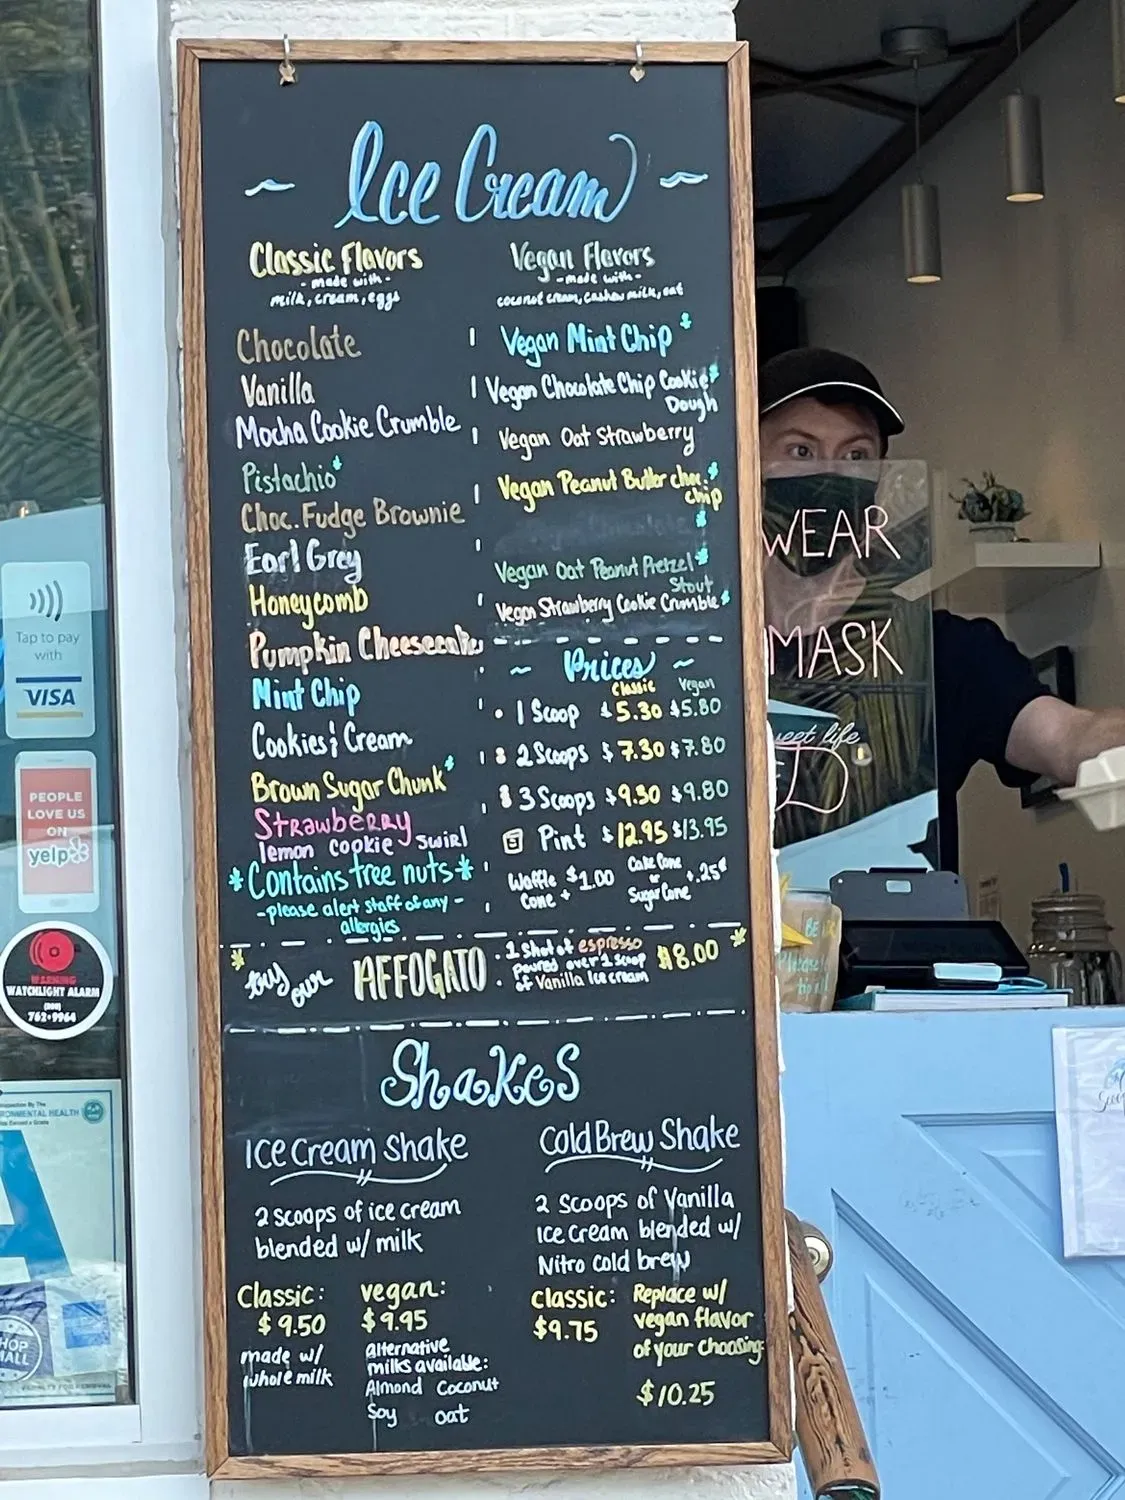 Ice Cream
Classic Flavors
- made with -
milk, cream, eggs
Chocolate
Vanilla
Mocha Cookie Crumble
Pistachio*
Choc. Fudge Brownie
Earl Grey
Honeycomb
Pumpkin Cheesecake
Mint Chip
Cookies & Cream
Brown Sugar Chunk*
Strawberry
lemon cookie swirl
*Contains tree nuts*
- please alert staff of any -
allergies
Vegan Flavors
- made with -
coconut cream, cashew milk, oat
Vegan Mint Chip*
Vegan Chocolate Chip Cookie*
Dough
Vegan Oat Strawberry
Vegan Peanut Butter choc.*
chip
Vegan Oat Peanut Pretzel*
Stout
Vegan Strawberry Cookie Crumble*
~ Prices ~
Classic Vegan
1 Scoop $5.30 $5.80
2 Scoops $7.30 $7.80
3 Scoops $9.30 $9.80
Pint $12.95 $13.95
Waffle Cone + $1.00
Cake Cone or Sugar Cone +.25¢
try our AFFOGATO
1 shot of espresso
poured over 1 scoop
of Vanilla Ice cream
$8.00
Shakes
Ice Cream Shake
2 scoops of ice cream
blended w/ milk
Classic:
$9.50
made w/
whole milk
vegan:
$9.95
alternative
milks available:
Almond Coconut
Soy oat
Cold Brew Shake
2 Scoops of Vanilla
Ice Cream blended w/
Nitro cold brew
Classic:
$9.75
Replace w/
vegan flavor
of your choosing:
$10.25
WEAR
MASK
Tap to pay
with
VISA
PEOPLE
LOVE US
ON
yelp
WARNING
WATCHLIGHT ALARM
(800)
762-9964
A